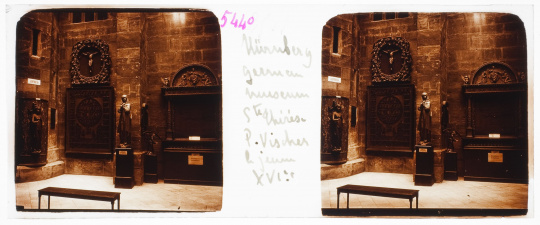 5440
Nürnberg
german
museum
Ste Thérèse
P. Vischer
le jeune
XVIe s